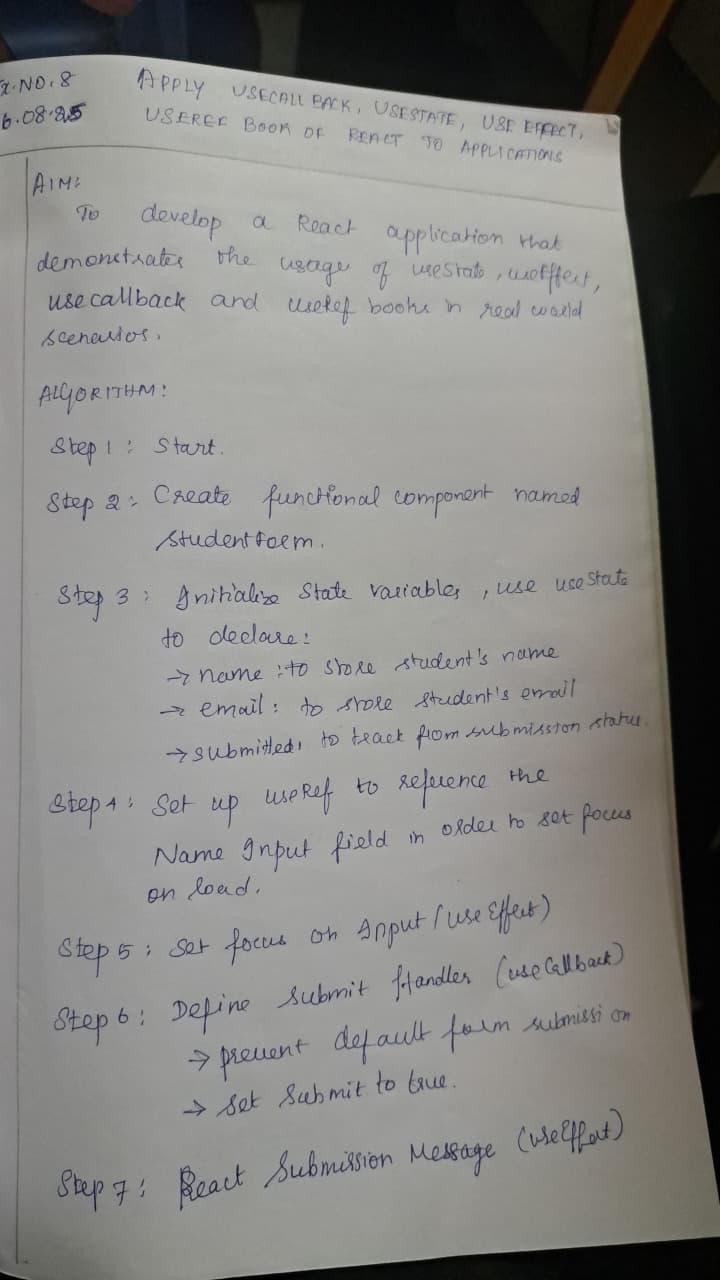 x.NO.8
6.08.25
APPLY USECALL BACK, USESTATE, USE EFFECT,
USEREF BOOK OF REACT TO APPLICATIONS
AIM:
To develop a React application that
demonstrates the usage of useState, useEffect,
use callback and useRef books in real world
scenarios.
ALGORITHM:
Step 1 : Start.
Step 2 : Create functional component named
studentForm.
Step 3 : Initialize State variables, use useState
to declare:
→ name : to store student's name
→ email : to store student's email
→ submitted: to track from submission status.
Step 4 : Set up useRef to reference the
Name Input field in order to set focus
on load.
Step 5 : Set focus on Input (use Effect)
Step 6 : Define submit Handler (use Callback)
→ prevent default form submission
→ Set Submit to true.
Step 7 : React Submission Message (useEffect)